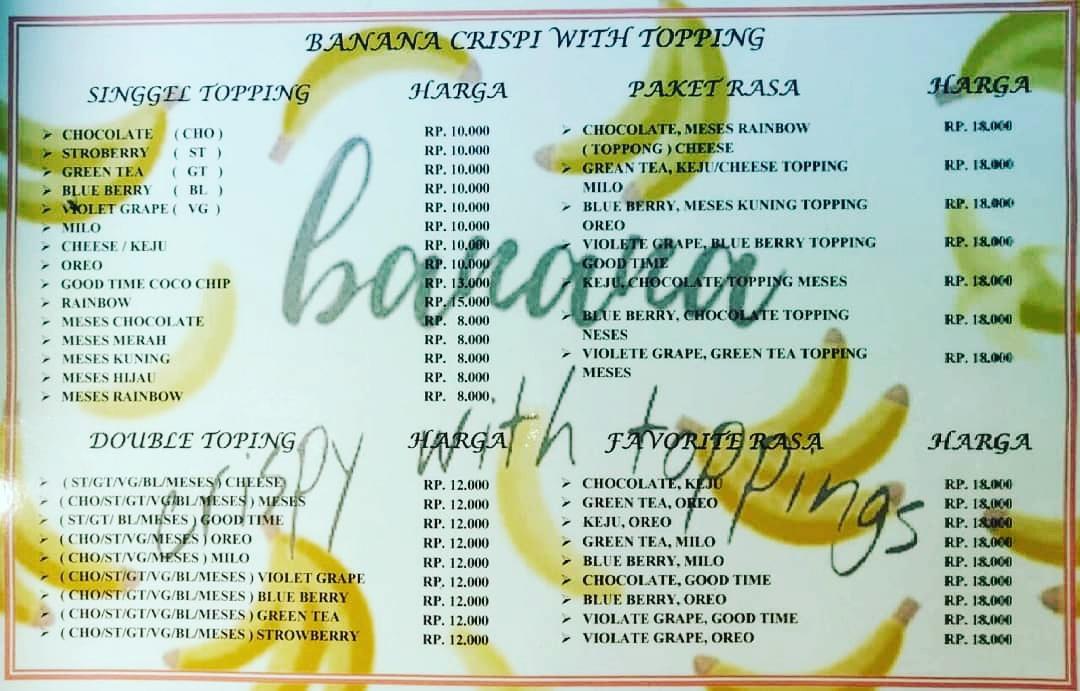 BANANA CRISPI WITH TOPPING
SINGGEL TOPPING HARGA
CHOCOLATE ( CHO ) RP. 10.000
STROBERRY ( ST ) RP. 10.000
GREEN TEA ( GT ) RP. 10.000
BLUE BERRY ( BL ) RP. 10.000
VIOLET GRAPE ( VG ) RP. 10.000
MILO RP. 10.000
CHEESE / KEJU RP. 10.000
OREO RP. 10.000
GOOD TIME COCO CHIP RP. 13.000
RAINBOW RP. 15.000
MESES CHOCOLATE RP. 8.000
MESES MERAH RP. 8.000
MESES KUNING RP. 8.000
MESES HIJAU RP. 8.000
MESES RAINBOW RP. 8.000
PAKET RASA HARGA
CHOCOLATE, MESES RAINBOW RP. 18.000
( TOPPONG ) CHEESE
GREAN TEA, KEJU/CHEESE TOPPING RP. 18.000
MILO
BLUE BERRY, MESES KUNING TOPPING RP. 18.000
OREO
VIOLETE GRAPE, BLUE BERRY TOPPING RP. 18.000
GOOD TIME
KEJU, CHOCOLATE TOPPING MESES RP. 18.000
BLUE BERRY, CHOCOLATE TOPPING RP. 18.000
NESES
VIOLETE GRAPE, GREEN TEA TOPPING RP. 18.000
MESES
banana
crispy with toppings
DOUBLE TOPING HARGA
( ST/GT/VG/BL/MESES ) CHEESE RP. 12.000
( CHO/ST/GT/VG/BL/MESES ) MESES RP. 12.000
( ST/GT/ BL/MESES ) GOOD TIME RP. 12.000
( CHO/ST/VG/MESES ) OREO RP. 12.000
( CHO/ST/VG/MESES ) MILO RP. 12.000
( CHO/ST/GT/VG/BL/MESES ) VIOLET GRAPE RP. 12.000
( CHO/ST/GT/VG/BL/MESES ) BLUE BERRY RP. 12.000
( CHO/ST/GT/VG/BL/MESES ) GREEN TEA RP. 12.000
( CHO/ST/GT/VG/BL/MESES ) STROWBERRY RP. 12.000
FAVORITE RASA HARGA
CHOCOLATE, KEJU RP. 18.000
GREEN TEA, OREO RP. 18.000
KEJU, OREO RP. 18.000
GREEN TEA, MILO RP. 18.000
BLUE BERRY, MILO RP. 18.000
CHOCOLATE, GOOD TIME RP. 18.000
BLUE BERRY, OREO RP. 18.000
VIOLATE GRAPE, GOOD TIME RP. 18.000
VIOLATE GRAPE, OREO RP. 18.000